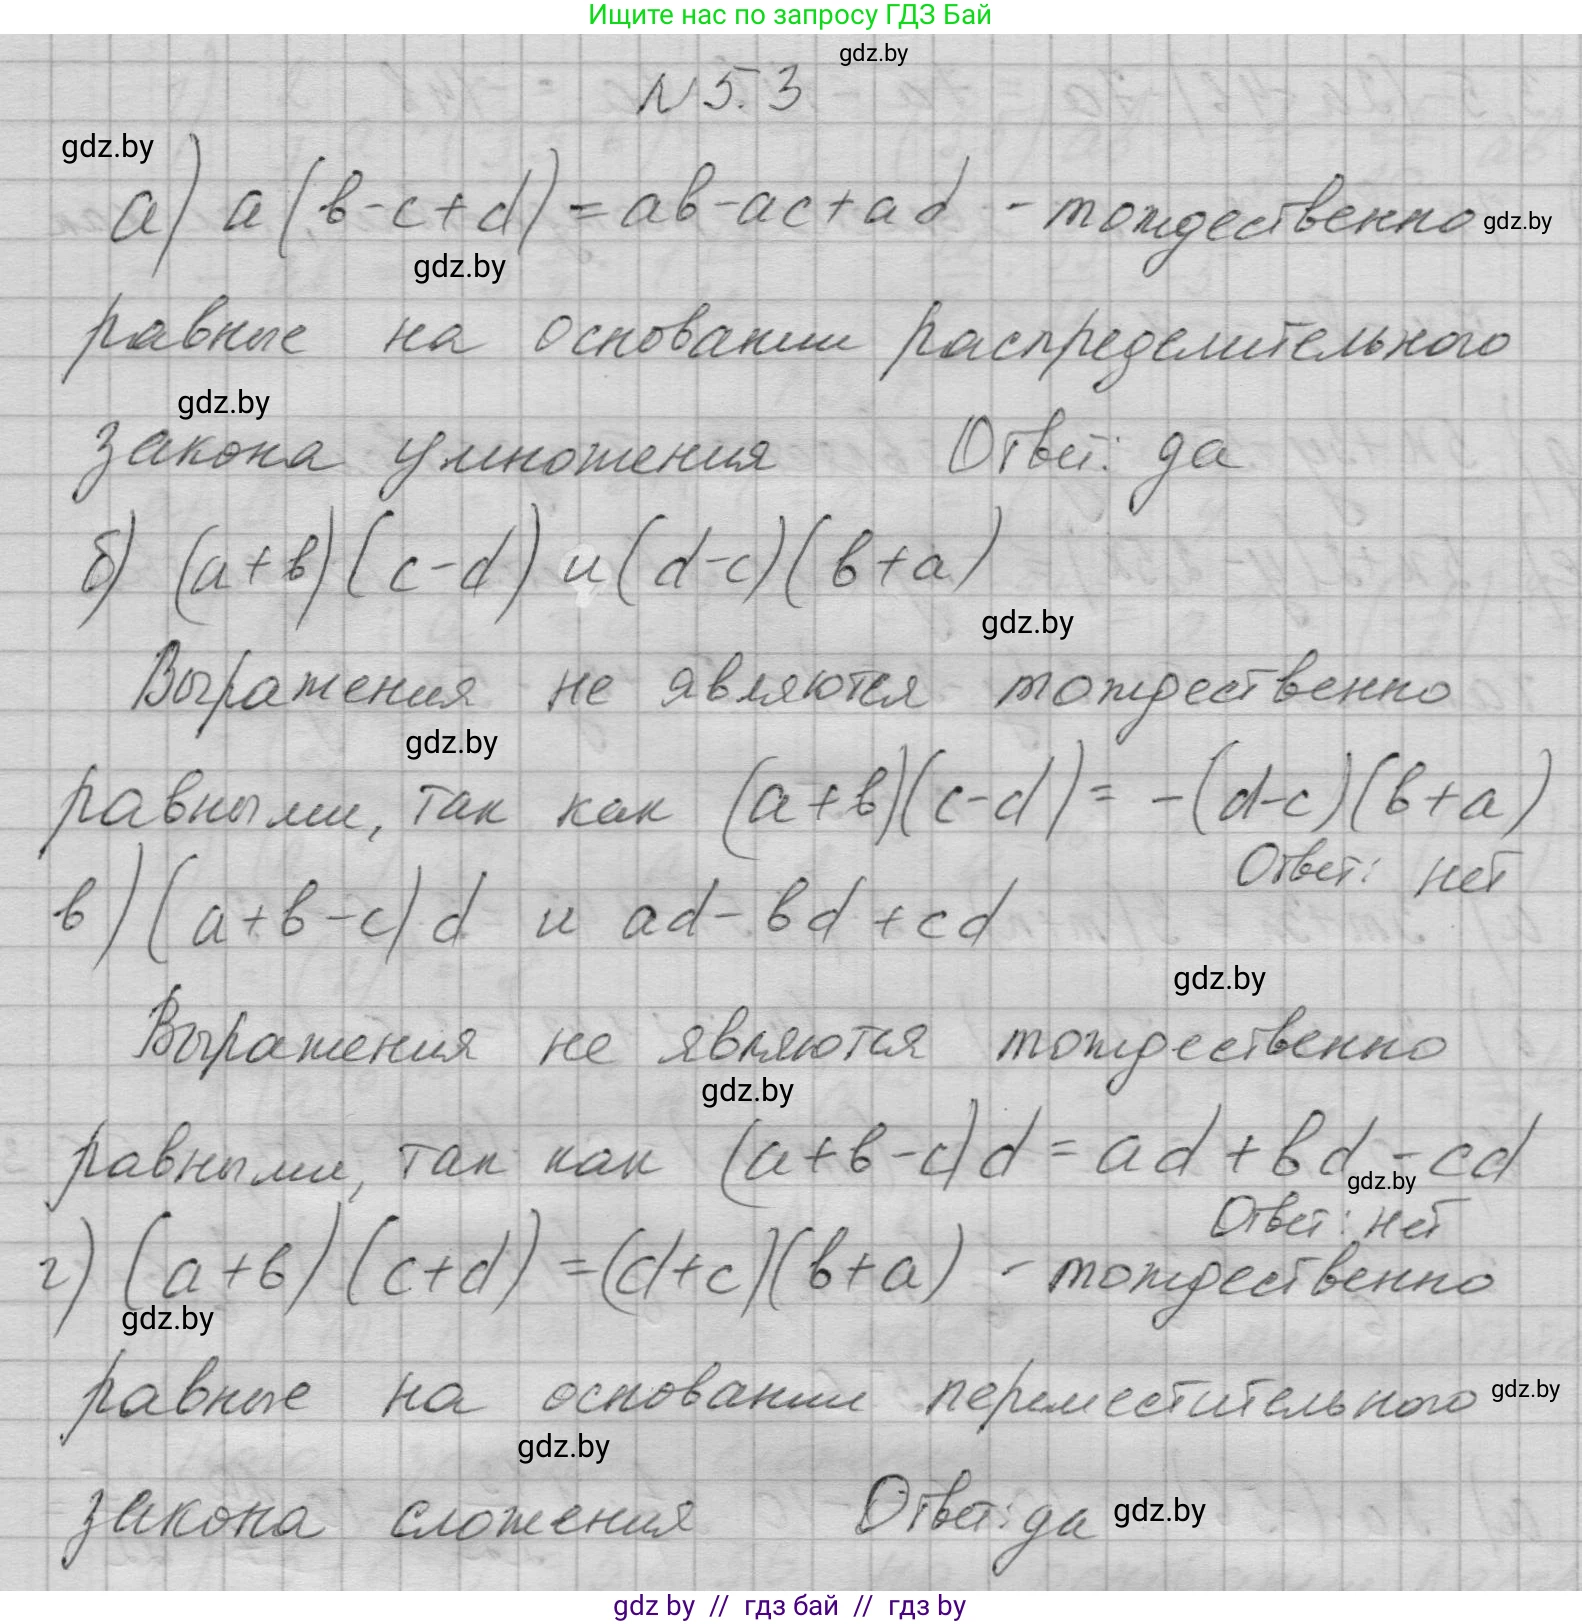 Ищите нас по запросу ГДЗ Бай
gdz.by
N 5.3
gdz.by
а) a(b-c+d)=ab-ac+ad - тождественно gdz.by
gdz.by
равные на основании распределительного
gdz.by
закона умножения Ответ: да
б) (a+b)(c-d) и (d-c)(b+a)
gdz.by
Выражения не являются тождественно
gdz.by
равными, так как (a+b)(c-d)= -(d-c)(b+a)
Ответ: нет
в) (a+b-c)d и ad-bd+cd
gdz.by
Выражения не являются тождественно
gdz.by
равными, так как (a+b-c)d=ad+bd-cd
gdz.by
Ответ: нет
г) (a+b)(c+d)=(d+c)(b+a) - тождественно
gdz.by
равные на основании переместительного gdz.by
gdz.by
закона сложения Ответ: да gdz.by
gdz by // гдз бай // гдз by